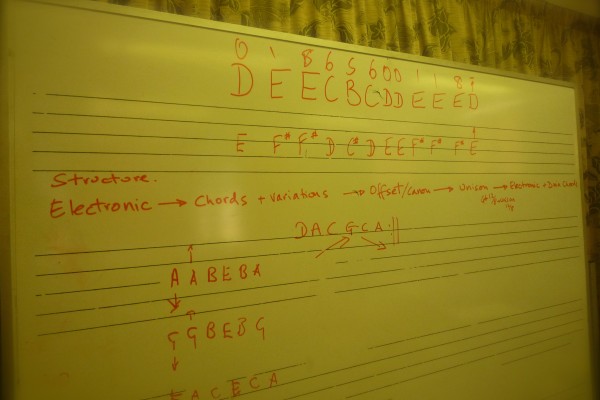 0 1 8 6 5 6 0 0 1 1 8 7
D E E C B C D D E E E D
E F# F# D C# D E E F# F# F# E
Structure.
Electronic → Chords + variations → Offset/canon → Unison → Electronic + Chords
D A C G C A :||
A A B E B A
G G B E B G
A C E C A